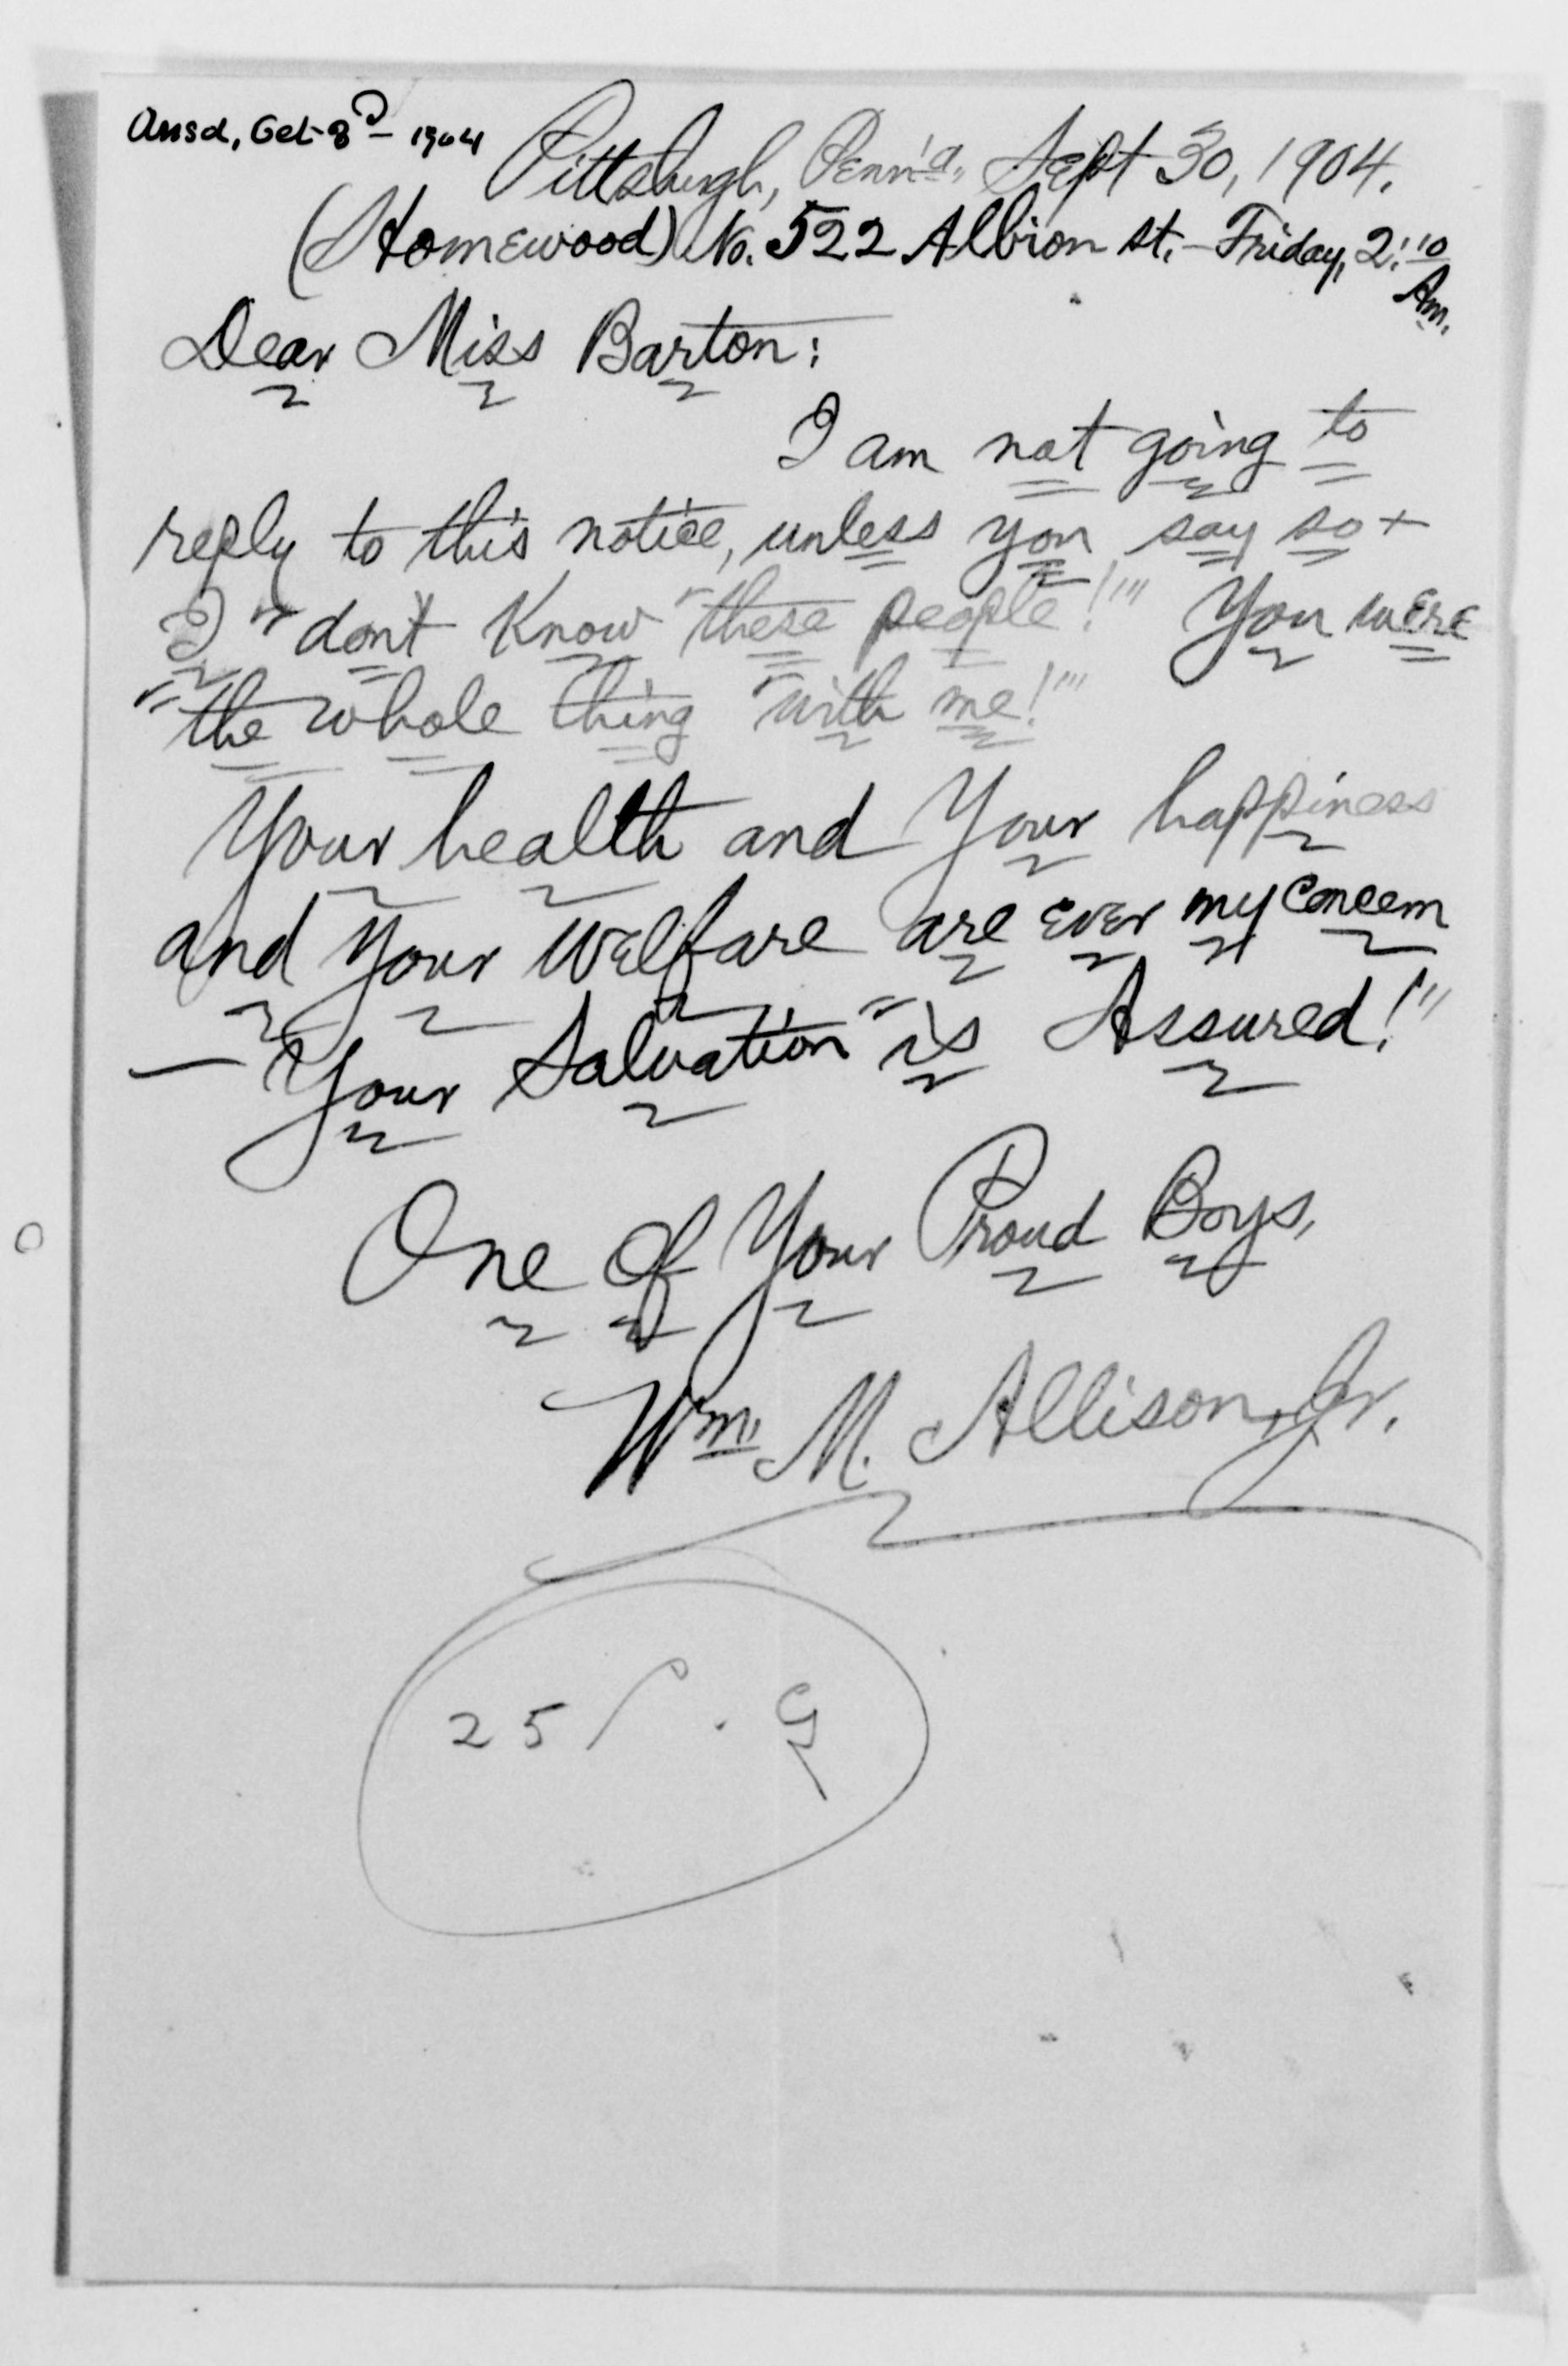 Ansd, Oct-8- 1904
Pittsburgh, Penn'a, Sept 30, 1904.
(Homewood) No. 522 Albion st. - Friday, 2:10
Am.
Dear Miss Barton:
I am not going to
reply to this notice, unless you say so +
I "don't Know "these people!"" You were
"the whole thing "with me!""
Your health and Your happiness
and your welfare are ever my concern
— Your Salvation "is Assured!"
One of Your Proud Boys,
Wm. M. Allison, Jr.
25